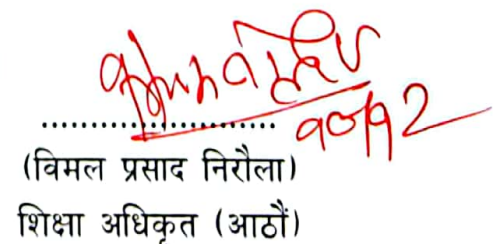 १०/१२
....................
(विमल प्रसाद निरौला)
शिक्षा अधिकृत (आठौं)